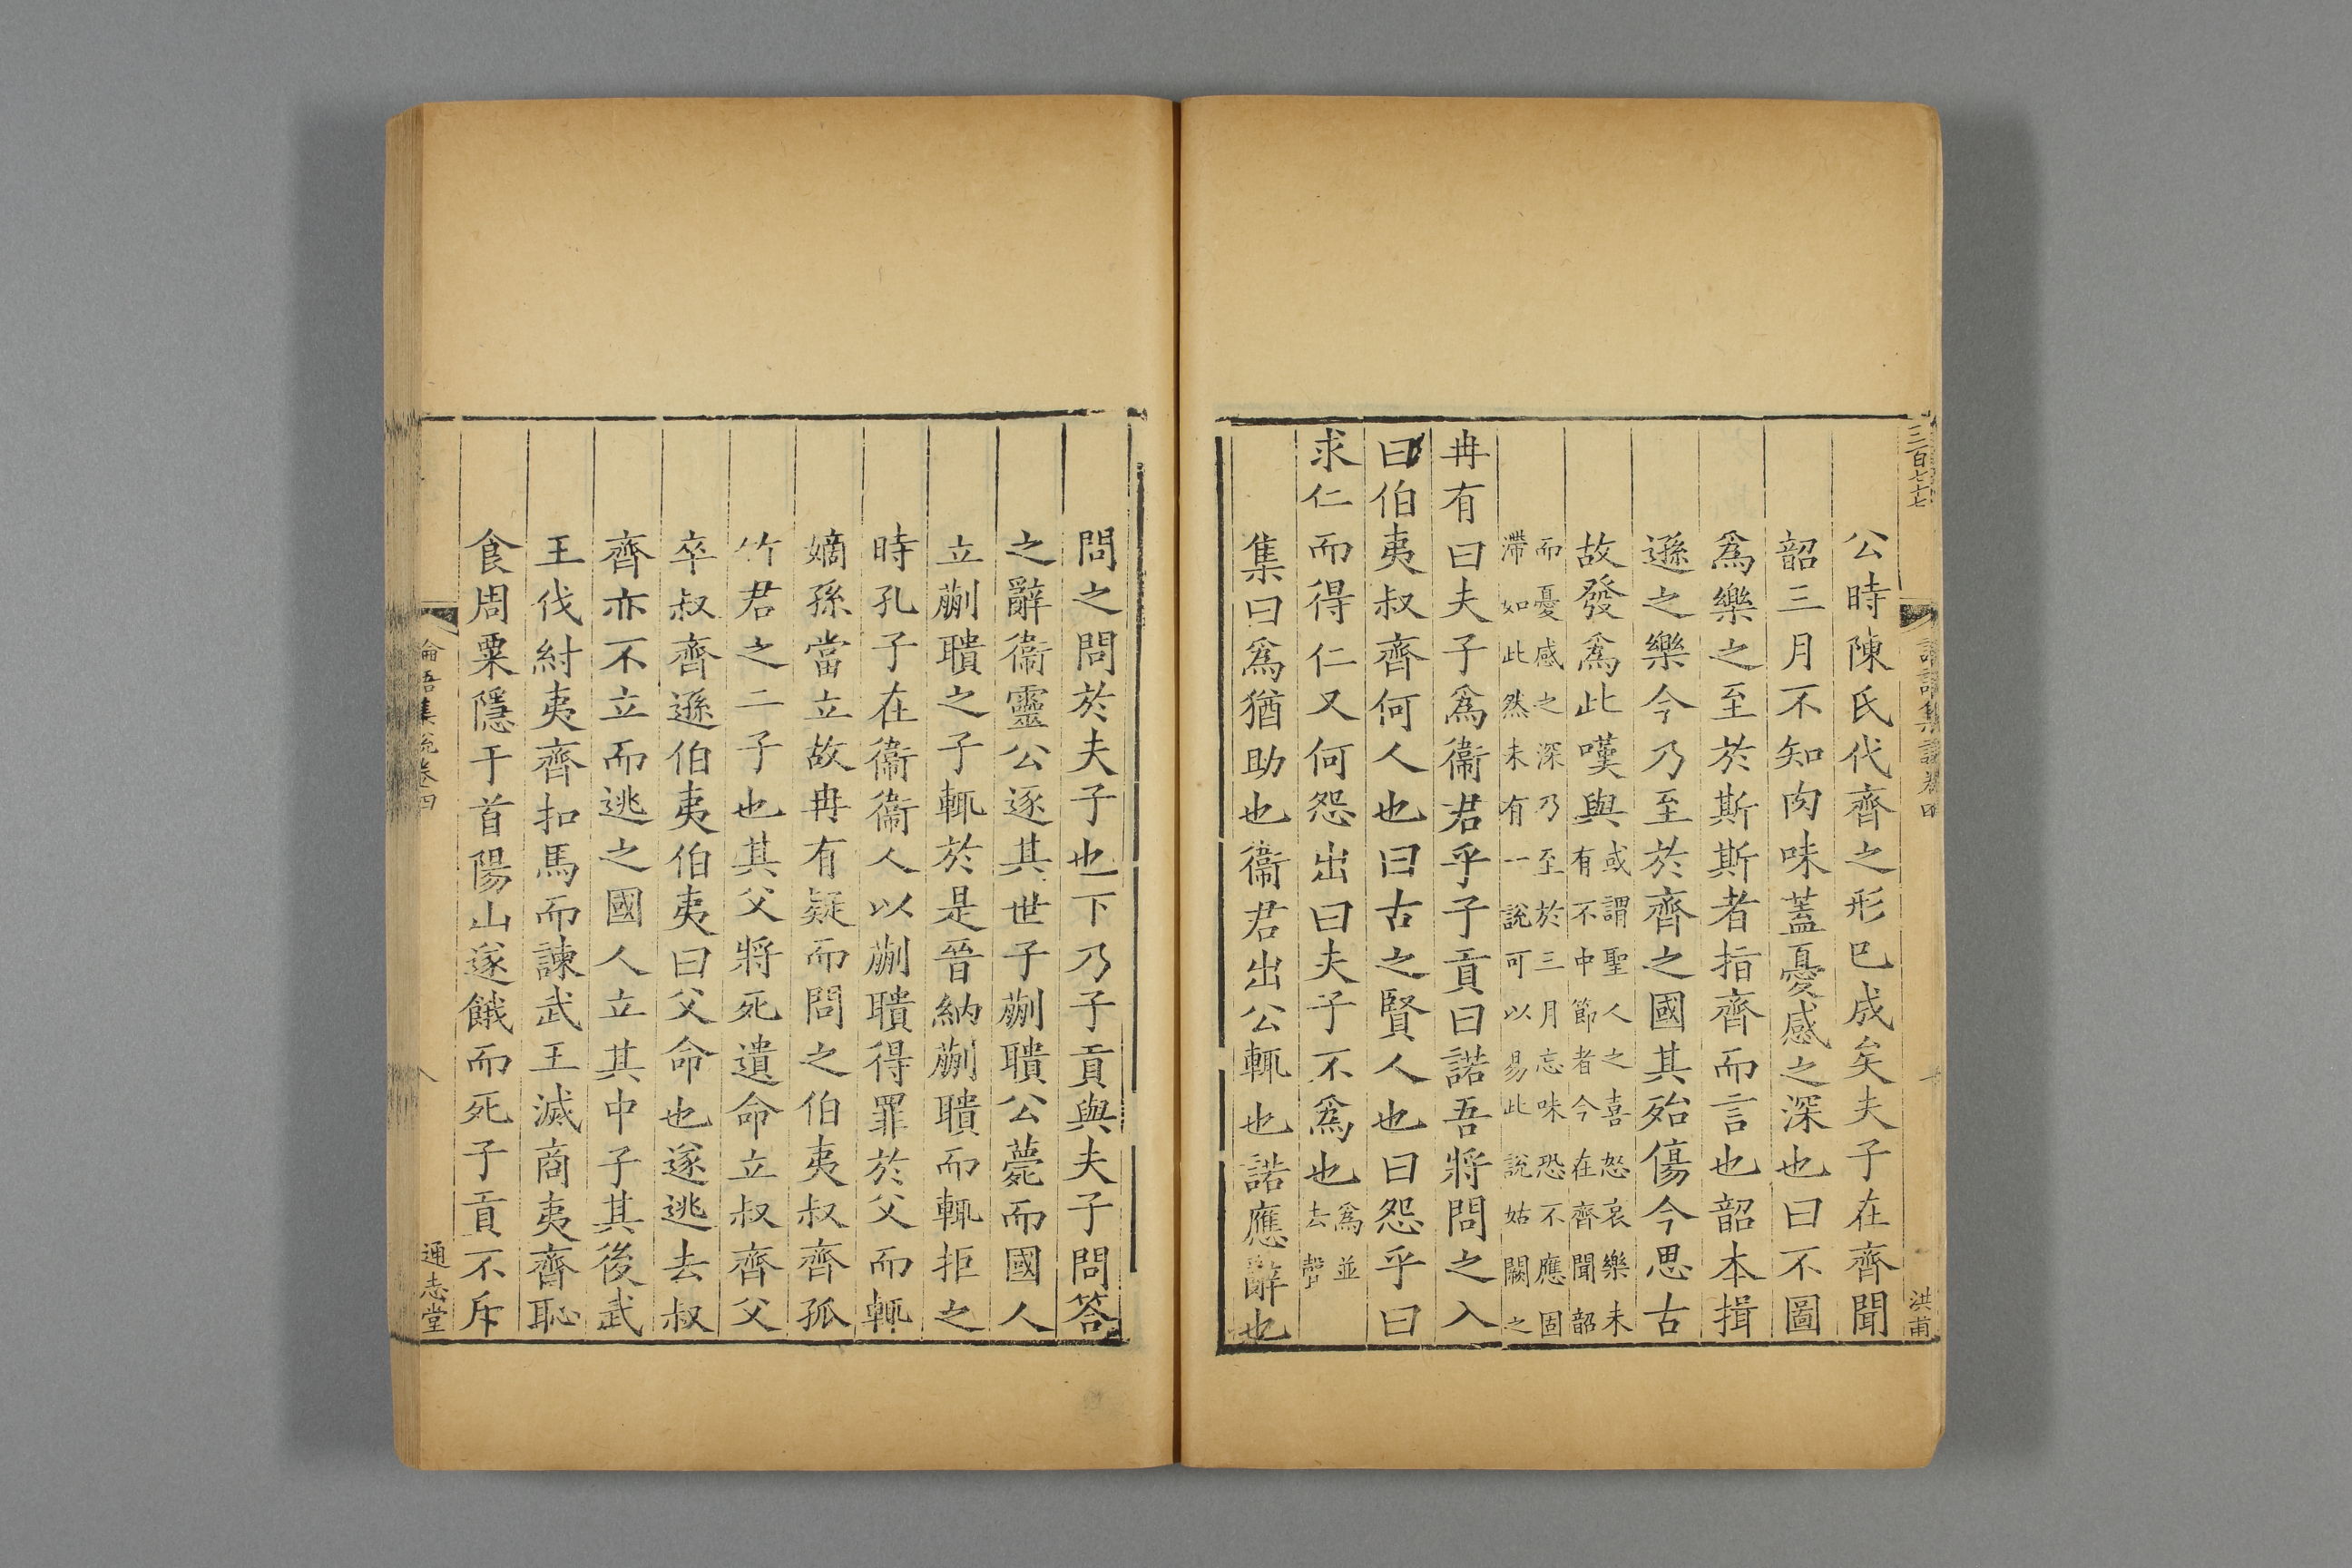 三百七七
論語集說卷四
洪甫
公時陳氏代齊之形已成矣夫子在齊聞
韶三月不知肉味蓋憂感之深也曰不圖
爲樂之至於斯斯者指齊而言也韶本揖
遜之樂今乃至於齊之國其殆傷今思古
故發爲此嘆與
或謂聖人之喜怒哀樂未
有不中節者今在齊聞韶
而憂感之深乃至於三月忘味恐不應固
滯如此然未有一說可以易此說姑闕之
冉有曰夫子爲衞君乎子貢曰諾吾將問之入
曰伯夷叔齊何人也曰古之賢人也曰怨乎曰
求仁而得仁又何怨出曰夫子不爲也
爲並
去聲
集曰爲猶助也衞君出公輒也諾應辭也
問之問於夫子也下乃子貢與夫子問答
之辭衞靈公逐其世子蒯聵公薨而國人
立蒯聵之子輒於是晉納蒯聵而輒拒之
時孔子在衞衞人以蒯聵得罪於父而輒
嫡孫當立故冉有疑而問之伯夷叔齊孤
竹君之二子也其父將死遺命立叔齊父
卒叔齊遜伯夷伯夷曰父命也遂逃去叔
齊亦不立而逃之國人立其中子其後武
王伐紂夷齊扣馬而諫武王滅商夷齊恥
食周粟隱于首陽山遂餓而死子貢不斥
論語集說卷四
八
通志堂